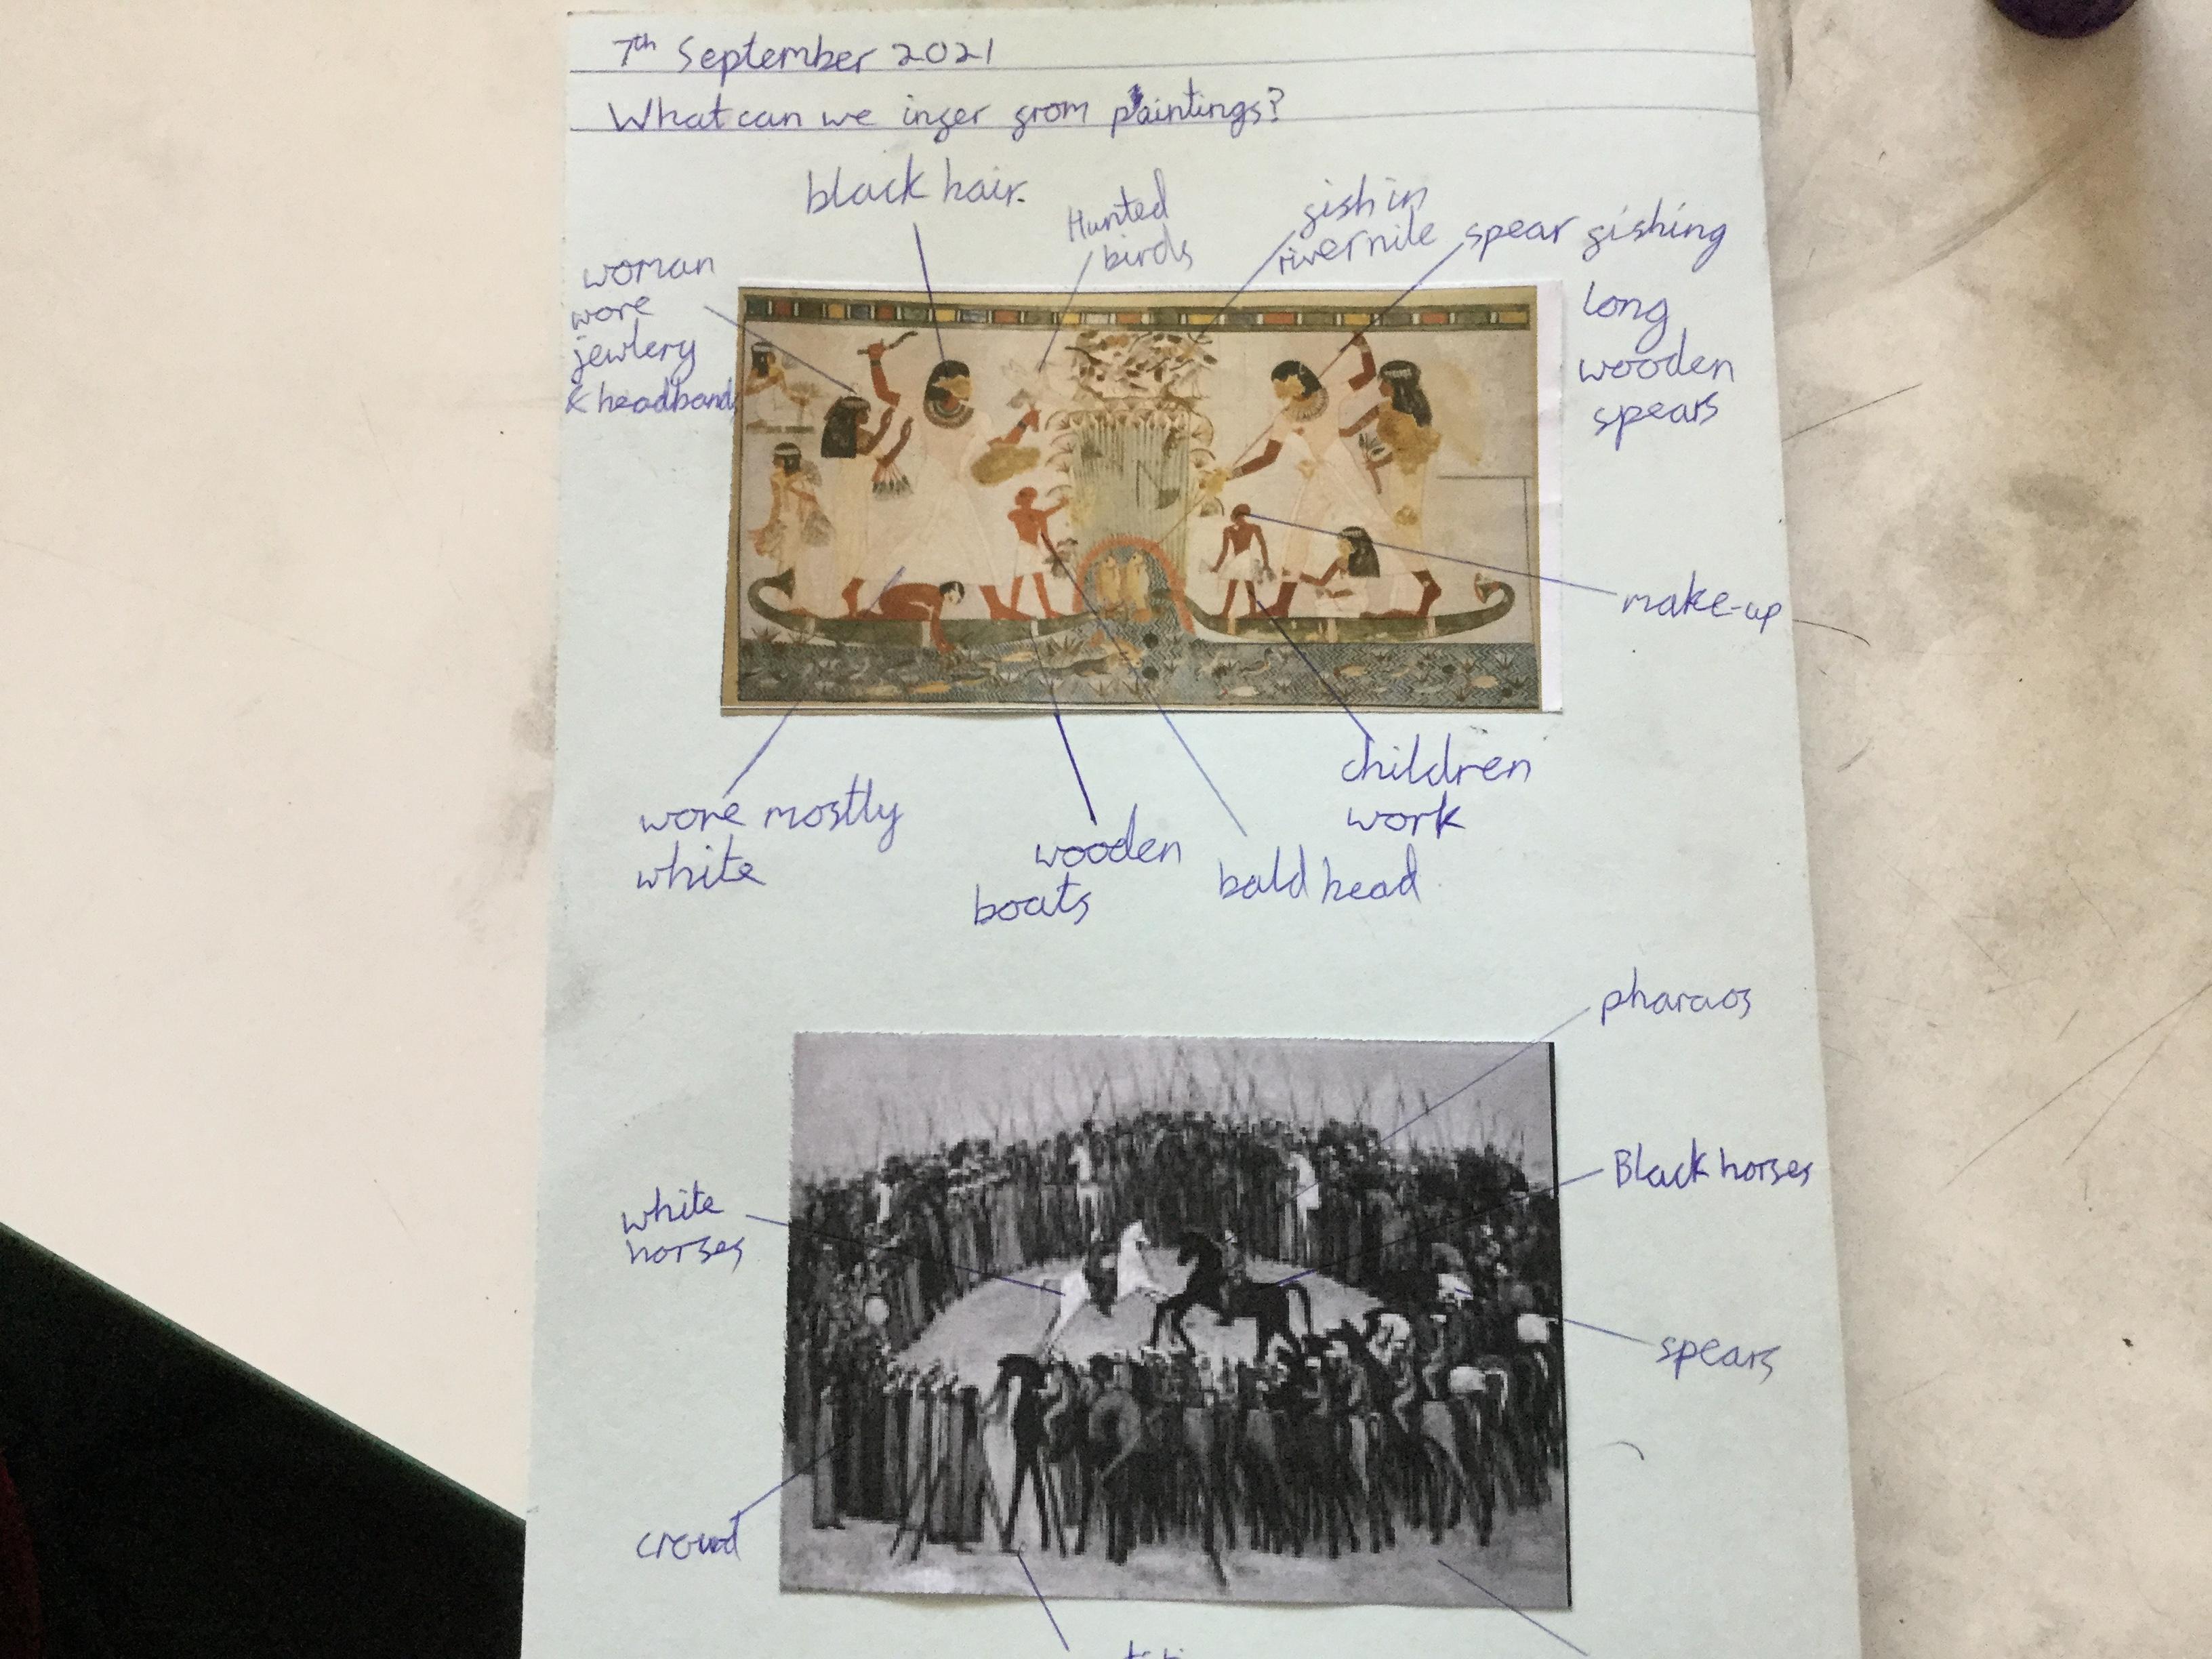 7th September 2021
What can we infer from paintings?
black hair.
Hunted
birds
fish in
river nile
spear fishing
long
wooden
spears
woman
wore
jewlery
& headband
make-up
children
work
wore mostly
white
wooden
boats
bald head
pharaos
Black horses
white
horses
spears
crowd